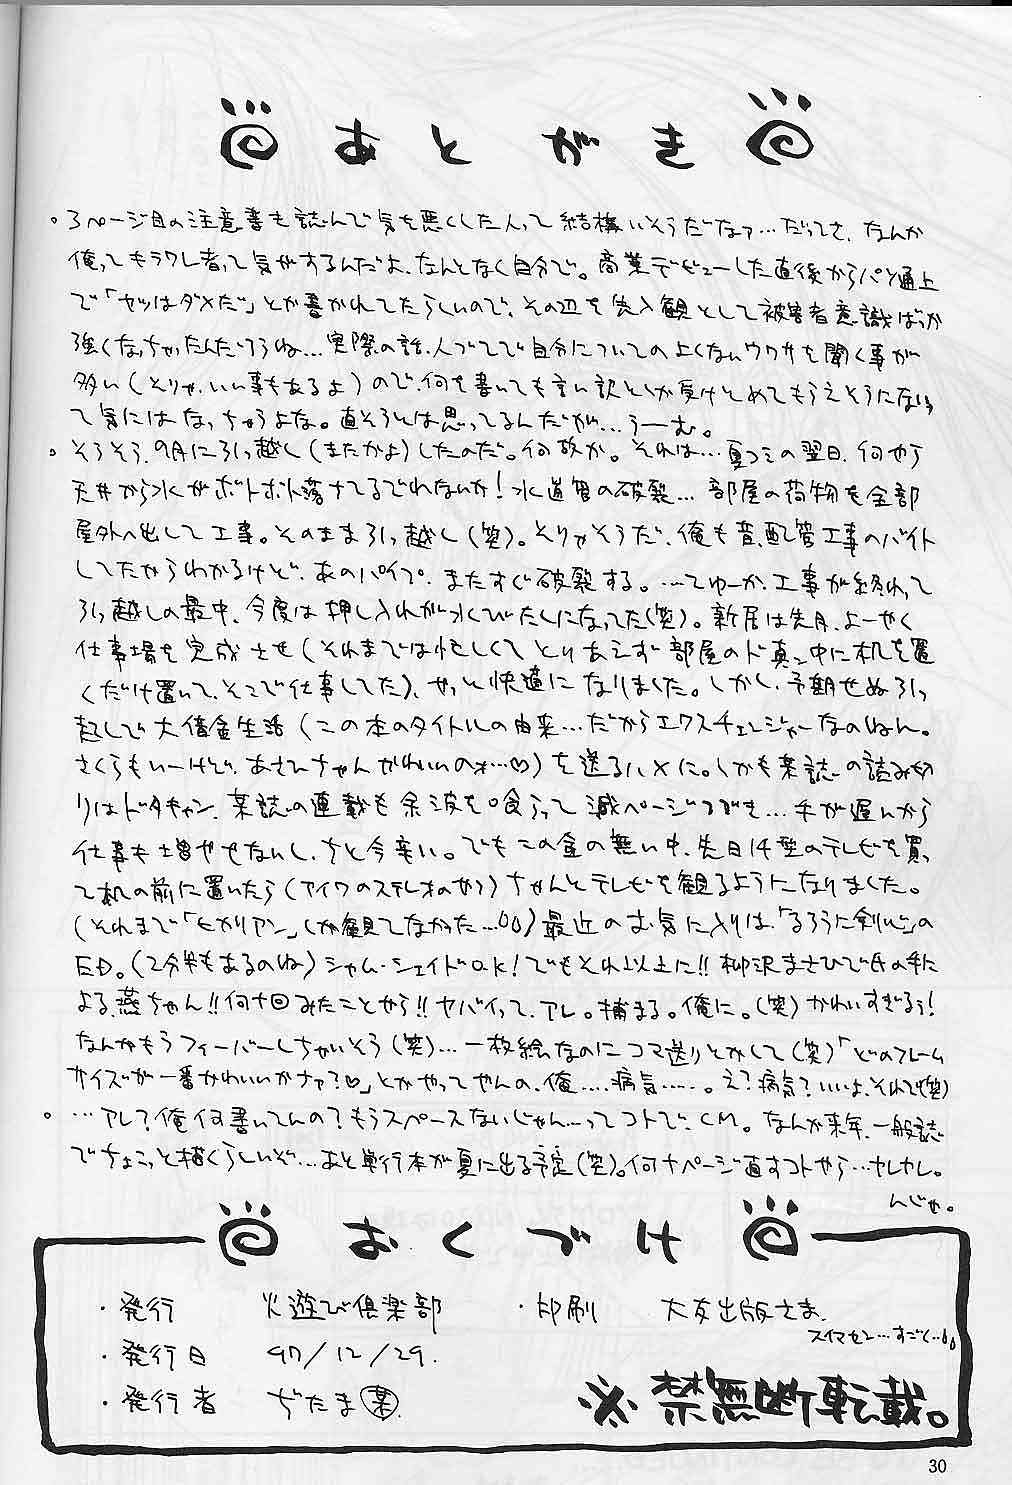 あとがき
。3ページ目の注意書も読んで気を悪くした人って結構いそうだなァ…だってさ、なんか
俺ってキラワレ者って気がするんだよ、なんとなく自分で。商業デビューした直後からパソ通上
で「ヤツはダメだ」とか書かれてたらしいので、その辺を先入観として被害者意識ばっか
強くなっちゃったんだろうね…実際の話、人づてで自分についての良くないウワサを聞く事が
多い(そりゃ、いい事もあるよ)ので、何を書いても言い訳としか受けとめてもらえそうにないっ
て気にはなっちゃうよな。直そうとは思ってるんだが…うーむ。
。そうそう、9月に引っ越し(またかよ)したのだ。何故か。それは…夏コミの翌日、何やら
天井から水がボトボト落ちてるでわないか!水道管の破裂…部屋の荷物を全部
屋外へ出して工事。そのまま引っ越し(笑)。そりゃそうだ、俺も昔、配管工事のバイト
してたからわかるけど、あのパイプ、またすぐ破裂する。…てゆーか、工事が終わって
引っ越しの最中、今度は押し入れが水びたしになってた(笑)。新居は先月、よーやく
仕事場を完成させ(それまでは忙しくてとりあえず部屋のド真ン中に机を置
くだけ置いて、そこで仕事してた)、やっと快適になりました。しかし、予期せぬ引っ
越しで大借金生活(この本のタイトルの由来…だからエクスチェンジャーなのねん。
さくらもいーけど、あさひちゃんかわいいのォ…♡)を送るハメに。しかも某誌の読み切
りはドタキャン、某誌の連載も余波を喰らって減ページつづき…手が遅いから
仕事も増やせないし、ちと今辛い。でもこの金の無い中、先日14型のテレビを買っ
て机の前に置いたら(アイワのステレオのやつ)ちゃんとテレビを観るようになりました。
(それまで「ヒカリアン」しか観てなかった…)最近のお気に入りは「るろうに剣心」の
ED。(2分半もあるのね)シャム・シェイドO.K!でもそれ以上に!!柳沢まさひで氏の手に
よる燕ちゃん!!何十回みたことやら!!ヤバイって、アレ。捕まる。俺に。(笑)かわいすぎるぅ!
なんかもうフィーバーしちゃいそう(笑)…一枚絵なのにコマ送りとかして(笑)「どのフレーム
サイズが一番かわいいかナァ?♡」とかやってやんの、俺……病気……。え?病気?いいよ、それで(笑)
。…アレ?俺何書いてんの?もうスペースないじゃん…ってコトで、CM。なんか来年、一般誌
でちょこっと描くらしいぞ…あと単行本が夏に出る予定(笑)。何十ページ直すコトやら…ヤレヤレ。
んじゃ。
おくづけ
・発行 火遊び倶楽部 ・印刷 大友出版さま
スイマセン…すごく…
・発行日 97/12/29.
・発行者 ぢたま(某).
※禁無断転載。
30